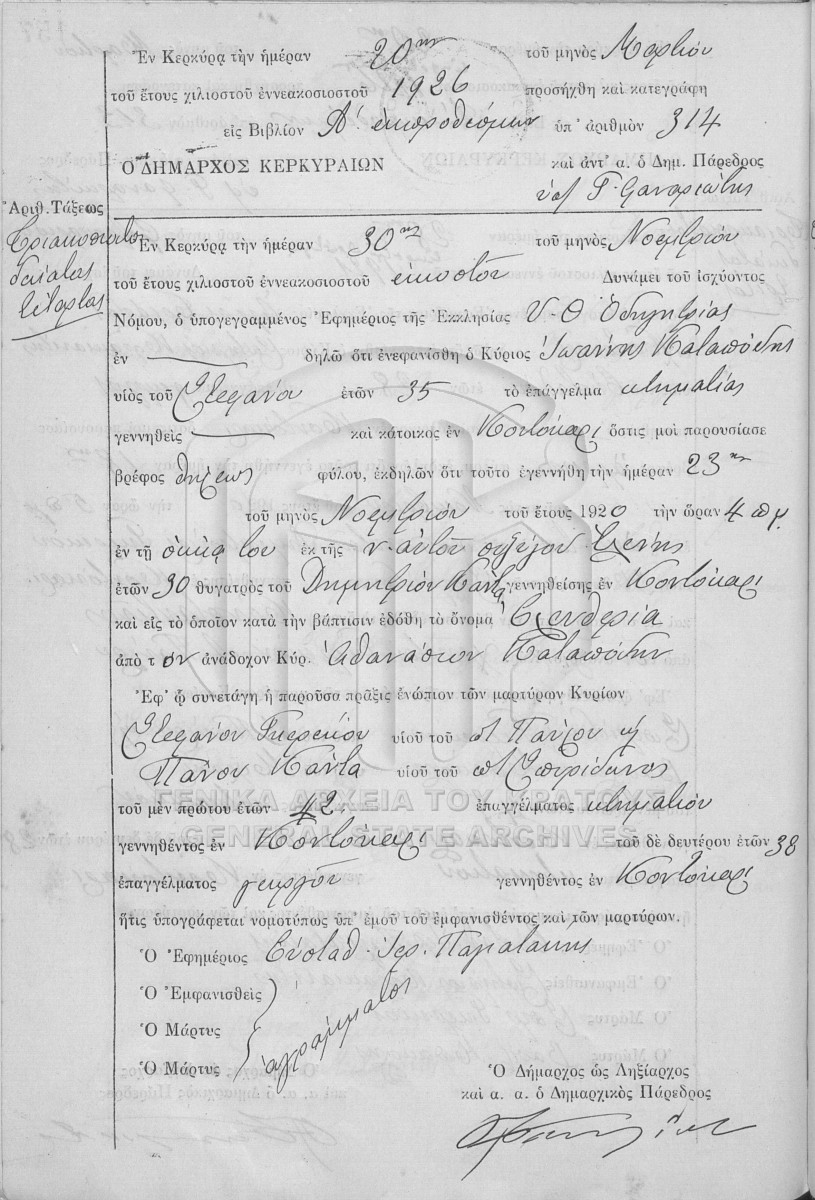 Ἐν Κερκύρᾳ τὴν ἡμέραν 20ην τοῦ μηνὸς Μαρτίου
τοῦ ἔτους χιλιοστοῦ ἐννεακοσιοστοῦ 1926 προσήχθη καὶ κατεγράφη
εἰς Βιβλίον Α' ἐκπροθέσμων ὑπ' ἀριθμὸν 314
Ὁ ΔΗΜΑΡΧΟΣ ΚΕΡΚΥΡΑΙΩΝ καὶ ἀντ' α. ὁ Δημ. Πάρεδρος
Γ.
Ἀριθ. Τάξεως
Τριακοσιοστὸς
δέκατος
τέταρτος
Ἐν Κερκύρᾳ τὴν ἡμέραν 30ην τοῦ μηνὸς Νοεμβρίου
τοῦ ἔτους χιλιοστοῦ ἐννεακοσιοστοῦ εἰκοστοῦ Δυνάμει τοῦ ἰσχύοντος
Νόμου, ὁ ὑπογεγραμμένος Ἐφημέριος τῆς Ἐκκλησίας Υ.Θ Ὁδηγητρίας
ἐν δηλῶ ὅτι ἐνεφανίσθη ὁ Κύριος Ἰωάννης Καταπόδης
υἱὸς τοῦ Στεφάνου ἐτῶν 35 τὸ ἐπάγγελμα κτηματίας
γεννηθεὶς καὶ κάτοικος ἐν Κοντόκαλι ὅστις μοὶ παρουσίασε
βρέφος θήλεως φύλου, ἐκδηλῶν ὅτι τοῦτο ἐγεννήθη τὴν ἡμέραν 23ην
τοῦ μηνὸς Νοεμβρίου τοῦ ἔτους 1920 τὴν ὥραν 4 πμ.
ἐν τῇ οἰκίᾳ του ἐκ τῆς ν. αὐτοῦ συζύγου Ἑλένης
ἐτῶν 30 θυγατρὸς τοῦ Δημητρίου Κάντα γεννηθείσης ἐν Κοντόκαλι
καὶ εἰς τὸ ὁποῖον κατὰ τὴν βάπτισιν ἐδόθη τὸ ὄνομα Ἐλευθερία
ἀπὸ τὸν ἀνάδοχον Κύρ. Ἀθανάσιον Καταπόδην
Ἐφ' ᾧ συνετάγη ἡ παροῦσα πρᾶξις ἐνώπιον τῶν μαρτύρων Κυρίων
Στεφάνου υἱοῦ τοῦ ποτ Παύλου κ
Πάνου Κάντα υἱοῦ τοῦ ποτ Σπυρίδωνος
ΓΕΝΙΚΑ ΑΡΧΕΙΑ ΤΟΥ ΚΡΑΤΟΥΣ
τοῦ μὲν πρώτου ἐτῶν 42 ἐπαγγέλματος κτηματίου
GENERAL STATE ARCHIVES
γεννηθέντος ἐν Κοντόκαλι τοῦ δὲ δευτέρου ἐτῶν 38
ἐπαγγέλματος γεωργοῦ γεννηθέντος ἐν Κοντόκαλι
ἥτις ὑπογράφεται νομοτύπως ὑπ' ἐμοῦ τοῦ ἐμφανισθέντος καὶ τῶν μαρτύρων.
Ὁ Ἐφημέριος Εὐσταθ. Ἱερ.
Ὁ Ἐμφανισθεὶς
Ὁ Μάρτυς ἀγράμματοι
Ὁ Μάρτυς
Ὁ Δήμαρχος ὡς Ληξίαρχος
καὶ α. α. ὁ Δημαρχικὸς Πάρεδρος